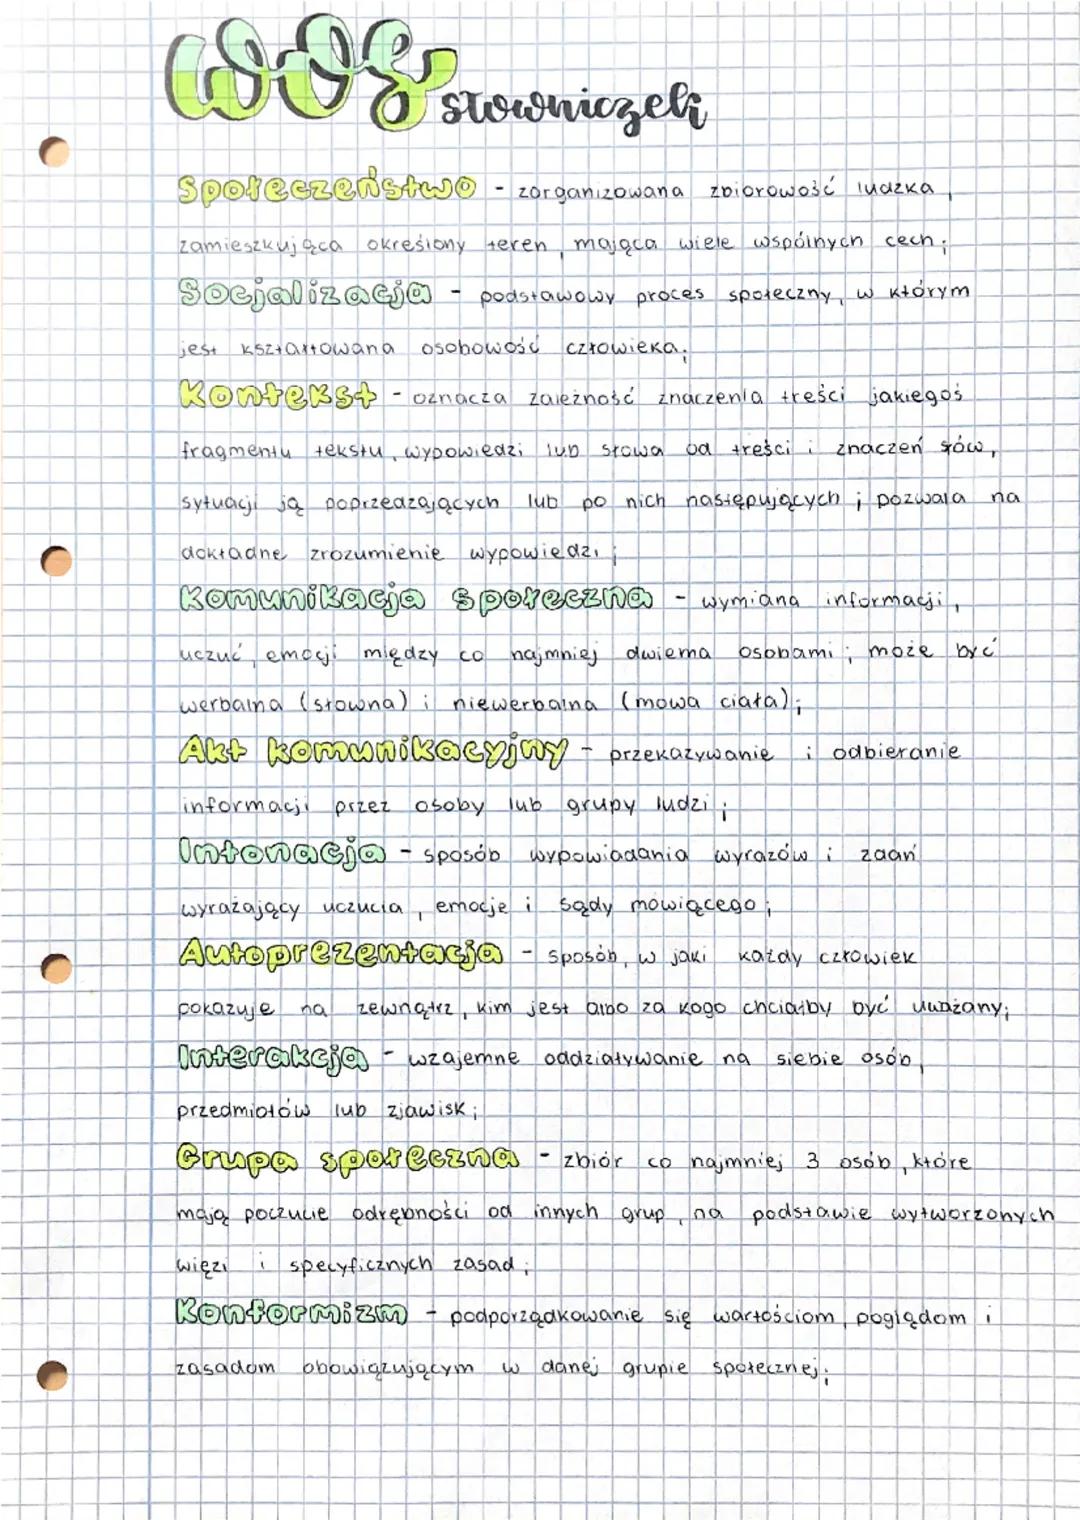 WOS słowniczek
Społeczeństwo - zorganizowana zbiorowość ludzka,
zamieszkująca określony teren, mająca wiele wspólnych cech;
Socjalizacja - podstawowy proces społeczny, w którym
jest kształtowana osobowość człowieka;
Kontekst - oznacza zależność znaczenia treści jakiegoś
fragmentu tekstu, wypowiedzi lub słowa od treści i znaczeń słów,
sytuacji ją poprzedzających lub po nich następujących; pozwala na
dokładne zrozumienie wypowiedzi;
Komunikacja społeczna - wymiana informacji,
uczuć, emocji między co najmniej dwiema osobami; może być
werbalna (słowna) i niewerbalna (mowa ciała);
Akt komunikacyjny - przekazywanie i odbieranie
informacji przez osoby lub grupy ludzi;
Intonacja - sposób wypowiadania wyrazów i zdań
wyrażający uczucia, emocje i sądy mówiącego;
Autoprezentacja - sposób, w jaki każdy człowiek
pokazuje na zewnątrz, kim jest albo za kogo chciałby być uważany;
Interakcja - wzajemne oddziaływanie na siebie osób,
przedmiotów lub zjawisk;
Grupa społeczna - zbiór co najmniej 3 osób, które
mają poczucie odrębności od innych grup, na podstawie wytworzonych
więzi i specyficznych zasad;
Konformizm - podporządkowanie się wartościom, poglądom i
zasadom obowiązującym w danej grupie społecznej;